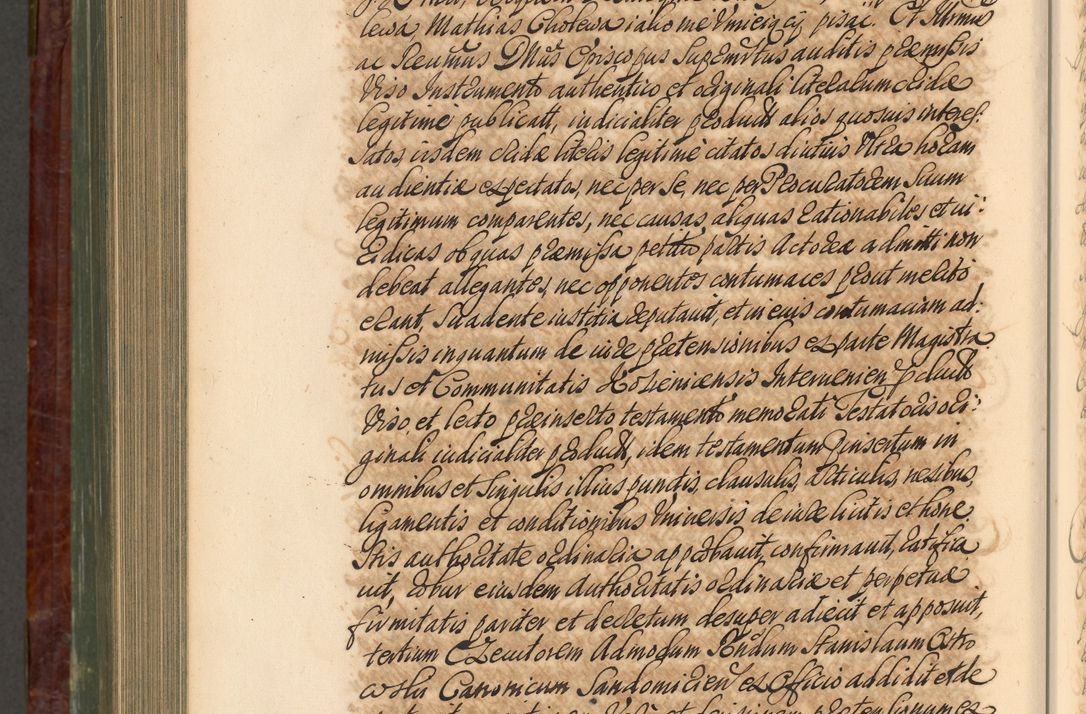 lewa, Mathias Cholewa iako me Dmicigcij pisac. Et Illrmus
ac Reumus Dnus Episcopus Supmtus auditis præmissis
Viso Instrumento authentico et originali literarum cridæ
legitime publicatt, iudicialiter product alios quosuis interes:
satos iisdem cridæ literis legitime citatos diutius Vltra horam
audientiæ expectatos, nec per se, nec per Procuratorem suum
legitimum comparentes, nec causas aliquas rationabiles et iu:
ridicas ob quas præmissa petita partis Actoreæ admitti non
debeat allegantes, nec opponentes contumaces prout merito
erant, Suadente iustitia reputauit, et in eius contumaciam ad:
missis inquantum de iure prætensionibus ex parte Magistra
tus et Communitatis Kosieniensis Interuenien product
Viso, et lecto præinserto testamento memorati Testatoris ori:
ginali iudicialiter product, idem testamentum insertum in
omnibus et singulis illius punctis, clausulis, Articulis, nexibus,
ligamentis et conditionibus Vniuersis de iure licitis et hone
stis authoritate ordinaria approbauit, confirmauit, ratifica
uit, robur eiusdem Authoritatis ordinariæ et perpetuæ
firmitatis pariter et decretum desuper adiecit et apposuit,
tertium Executorem Admodum Rndum Stanislaum Ostro
Canonicum Sandomirien ex Officio addidit et de